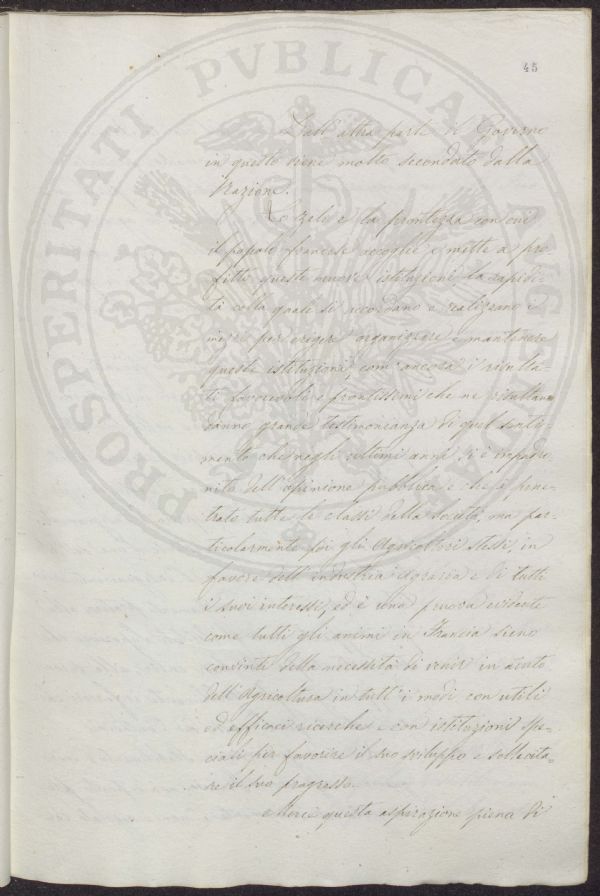 45
Dall' altra parte il Governo
in questo viene molto secondato dalla
Nazione.
Lo zelo e la prontezza con cui
il popolo francese accoglie e mette a pro-
fitto queste nuove istituzioni la rapidi-
tà colla quale si accordano e realizzano i
mezzi per erigere organizzare e mantenere
queste istituzioni, com' ancora i risulta-
ti favorevoli e prontissimi che ne risultano
danno grande testimonianza di quel senti-
mento che negli ultimi anni si è impadro-
nito dell' opinione pubblica e che à pene-
trato tutte le classi della società, ma par-
ticolarmente poi gli Agricoltori stessi, in
favore dell' industria Agraria e di tutti
i suoi interessi, ed è una pruova evidente
come tutti gli animi in Francia sieno
convinti della necessità di venir in aiuto
dell' Agricoltura in tutt' i modi con utili
ed efficaci ricerche e con istituzioni spe-
ciali per favorire il suo sviluppo e sollecita-
re il suo progresso.
Mercè questa aspirazione piena di
PROSPERITATI PVBLICAE